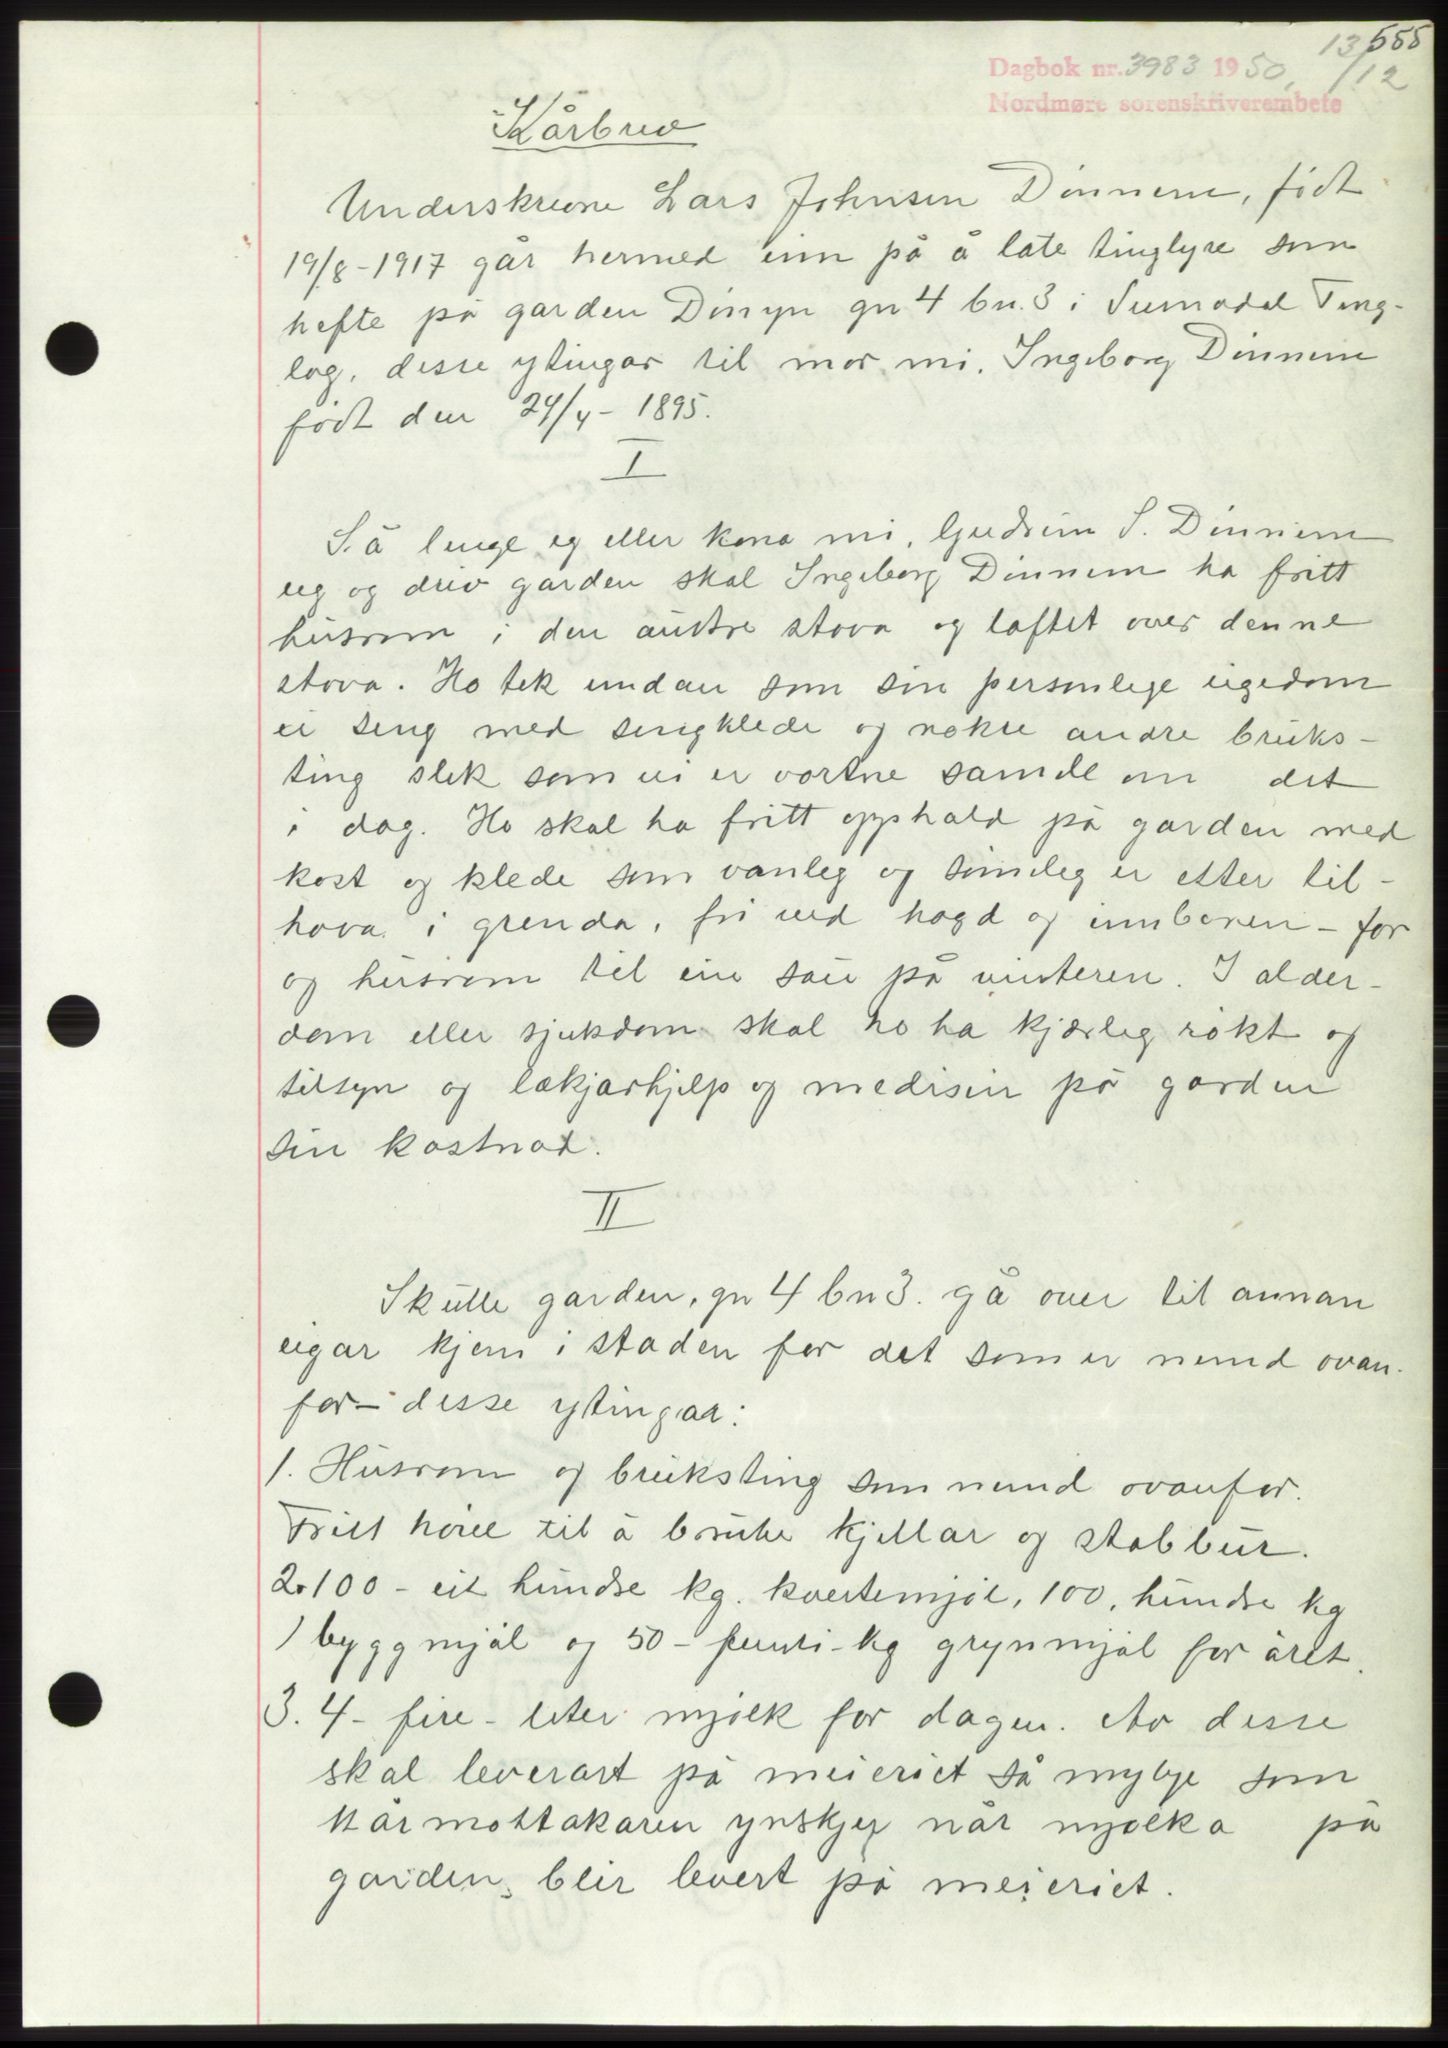 555
13/12
Dagbok nr. 3983 1950,
Nordmøre sorenskriverembete
Kårbrev
Underskrevne Lars Johnsen Dønnem, født
19/8-1917 går hermed inn på å late tinglyse som
hefte på garden Dønyn gn 4 bn. 3 i Surnadal Ting-
lag, desse ytingar til mor mi, Ingeborg Dønnem
født den 24/4-1895.
I
Så lenge eg eller kona mi, Gudrun S. Dønnem
eig og driv garden skal Ingeborg Dønnem ha fritt
husrom i den austre stova og loftet over denne
stova. Ho tek undan som sin personlege eigedom
ei seng med sengklede og nokre andre bruks-
ting slik som vi er vortne samde om det
i dag. Ho skal ha fritt opphald på garden med
kost og klede som vanleg og sømeleg er etter til-
høva i grenda, fri ved hogd og innboren - for
og husrom til ein sau på vinteren. I alder-
dom eller sjukdom skal ho ha kjærleg røkt og
tilsyn og lækjarhjelp og medisin på garden
sin kostnad.
II
Skulle garden, gn 4 bn 3. gå over til annan
eigar kjem i staden for det som er nemnd ovan-
for - desse ytingar:
1. Husrom og bruksting som nemnd ovanfor.
Fritt høve til å bruke kjellar og stabbur.
2. 100 - eit hundre kg. kveitemjøl, 100, hundre kg
byggmjøl og 50 - femti - kg grynmjøl for året.
3. 4 - fire - liter mjølk for dagen. Av desse
skal leverast på meieriet så mykje som
kårmottakaren ynskjer når mjølka på
garden blir levert på meieriet.